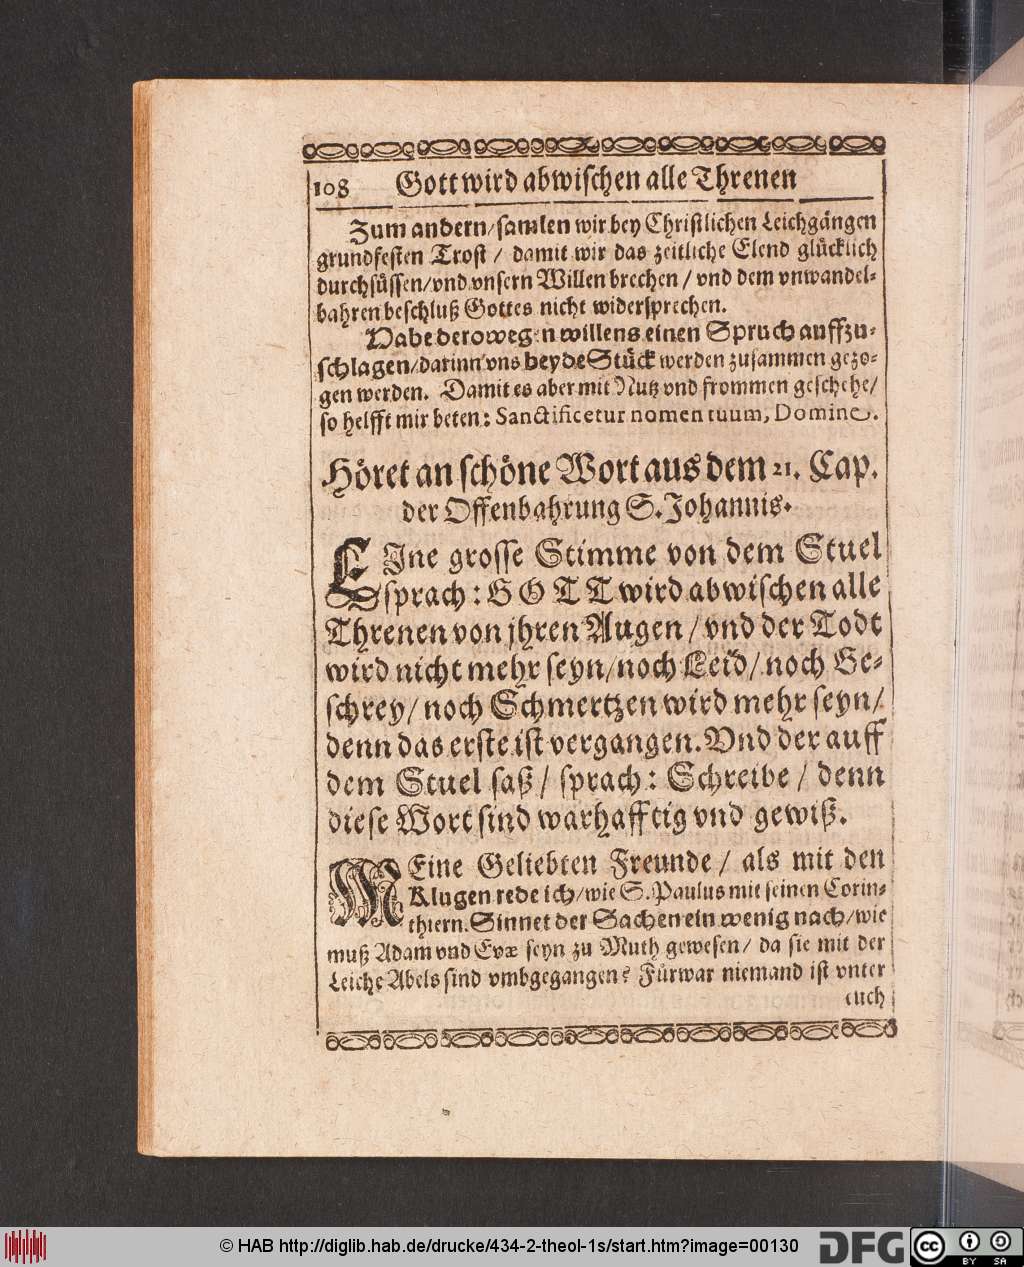 108 Gott wird abwischen alle Threnen
Zum andern/ samlen wir bey Christlichen Leichgängen
grundfesten Trost / damit wir das zeitliche Elend glücklich
durchsüssen/ vnd vnsern Willen brechen / vnd dem vnwandel-
bahren beschluß Gottes nicht widersprechen.
Habe derowegen willens einen Spruch auffzu-
schlagen/ darinn vns beyde Stück werden zusammen gezo-
gen werden. Damit es aber mit Nutz vnd frommen geschehe/
so helfft mir beten: Sanctificetur nomen tuum, Domine.
Höret an schöne Wort aus dem 21. Cap.
der Offenbahrung S. Johannis.
EIne grosse Stimme von dem Stuel
sprach: GOTT wird abwischen alle
Threnen von jhren Augen / vnd der Todt
wird nicht mehr seyn/ noch Leid/ noch Ge-
schrey/ noch Schmertzen wird mehr seyn/
denn das erste ist vergangen. Vnd der auff
dem Stuel saß / sprach: Schreibe / denn
diese Wort sind warhafftig vnd gewiß.
MEine Geliebten Freunde / als mit den
Klugen rede ich/ wie S. Paulus mit seinen Corin-
thiern. Sinnet der Sachen ein wenig nach/ wie
muß Adam vnd Evæ seyn zu Muth gewesen/ da sie mit der
Leiche Abels sind vmbgegangen? Fürwar niemand ist vnter
euch
© HAB http://diglib.hab.de/drucke/434-2-theol-1s/start.htm?image=00130 DFG cc BY SA